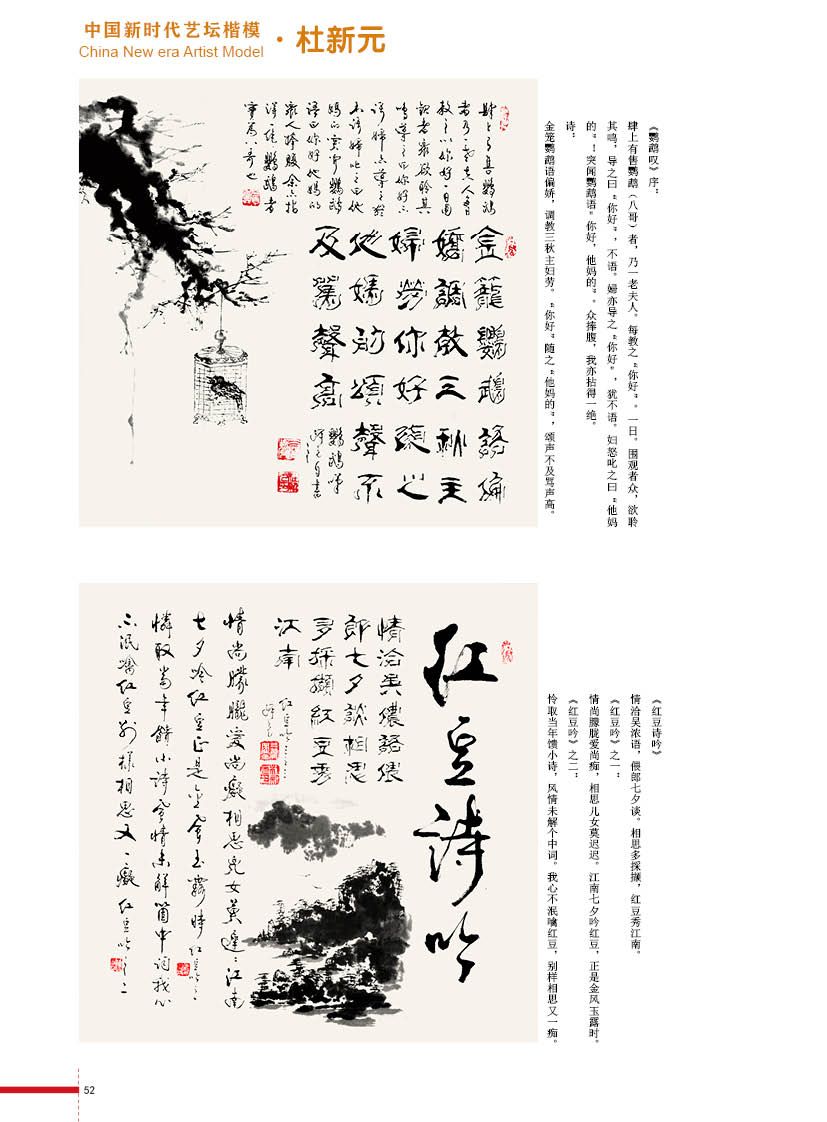 中国新时代艺坛楷模
China New era Artist Model
·杜新元
《鹦鹉叹》序：
肆上有售鹦鹉（八哥）者，乃一老夫人。每教之“你好”。一日。围观者众，欲聆
其鸣，导之曰“你好”，不语。婦亦导之“你好”，犹不语。妇怒叱之曰“他妈
的”！突闻鹦鹉语“你好，他妈的”。众捧腹，我亦拈得一绝。
诗：
金笼鹦鹉语偏娇，调教三秋主妇劳。“你好”随之“他妈的”，颂声不及骂声高。
金籠鸚鵡語偏
嬌調教三秋主
婦勞你好隨之
他媽的頌聲不
及罵聲高
《红豆诗吟》
情洽吴浓语，偎郎七夕谈。相思多採撷，红豆秀江南。
《红豆吟》之一：
情尚朦胧爱尚痴，相思儿女莫迟迟。江南七夕吟红豆，正是金风玉露时。
《红豆吟》之二：
怜取当年馈小诗，风情未解个中词。我心不泯噙红豆，别样相思又一痴。
红豆詩吟
情洽吴儂語偎
郎七夕談相思
多採擷紅豆秀
江南
情尚朦朧愛尚癡相思兒女莫遲遲江南
七夕吟红豆正是金風玉露時红豆吟之一
憐取當年饋小詩風情未解箇中词我心
不泯噙红豆别樣相思又一癡红豆吟之二
52